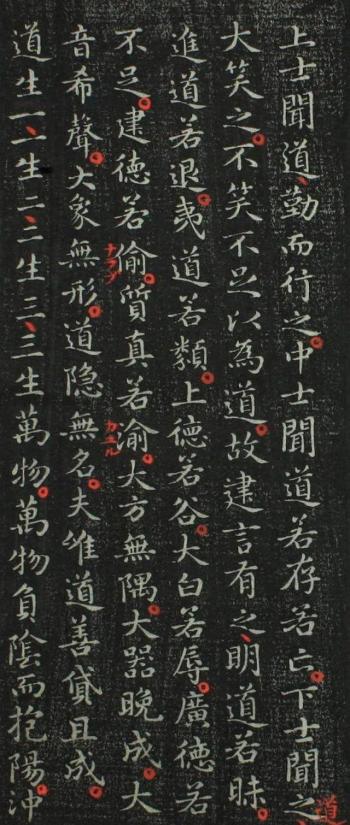 上士聞道、勤而行之。中士聞道若存若亡。下士聞之、
道
大笑之。不笑不足以為道。故建言有之、明道若昧。
進道若退。夷道若類。上德若谷。大白若辱。廣德若
不足。建德若偷。質真若渝。大方無隅。大器晚成。大
カユル
音希聲。大象無形。道隐無名。夫唯道善貸且成。
道生一、一生二、二生三、三生萬物。萬物負陰而抱陽。冲